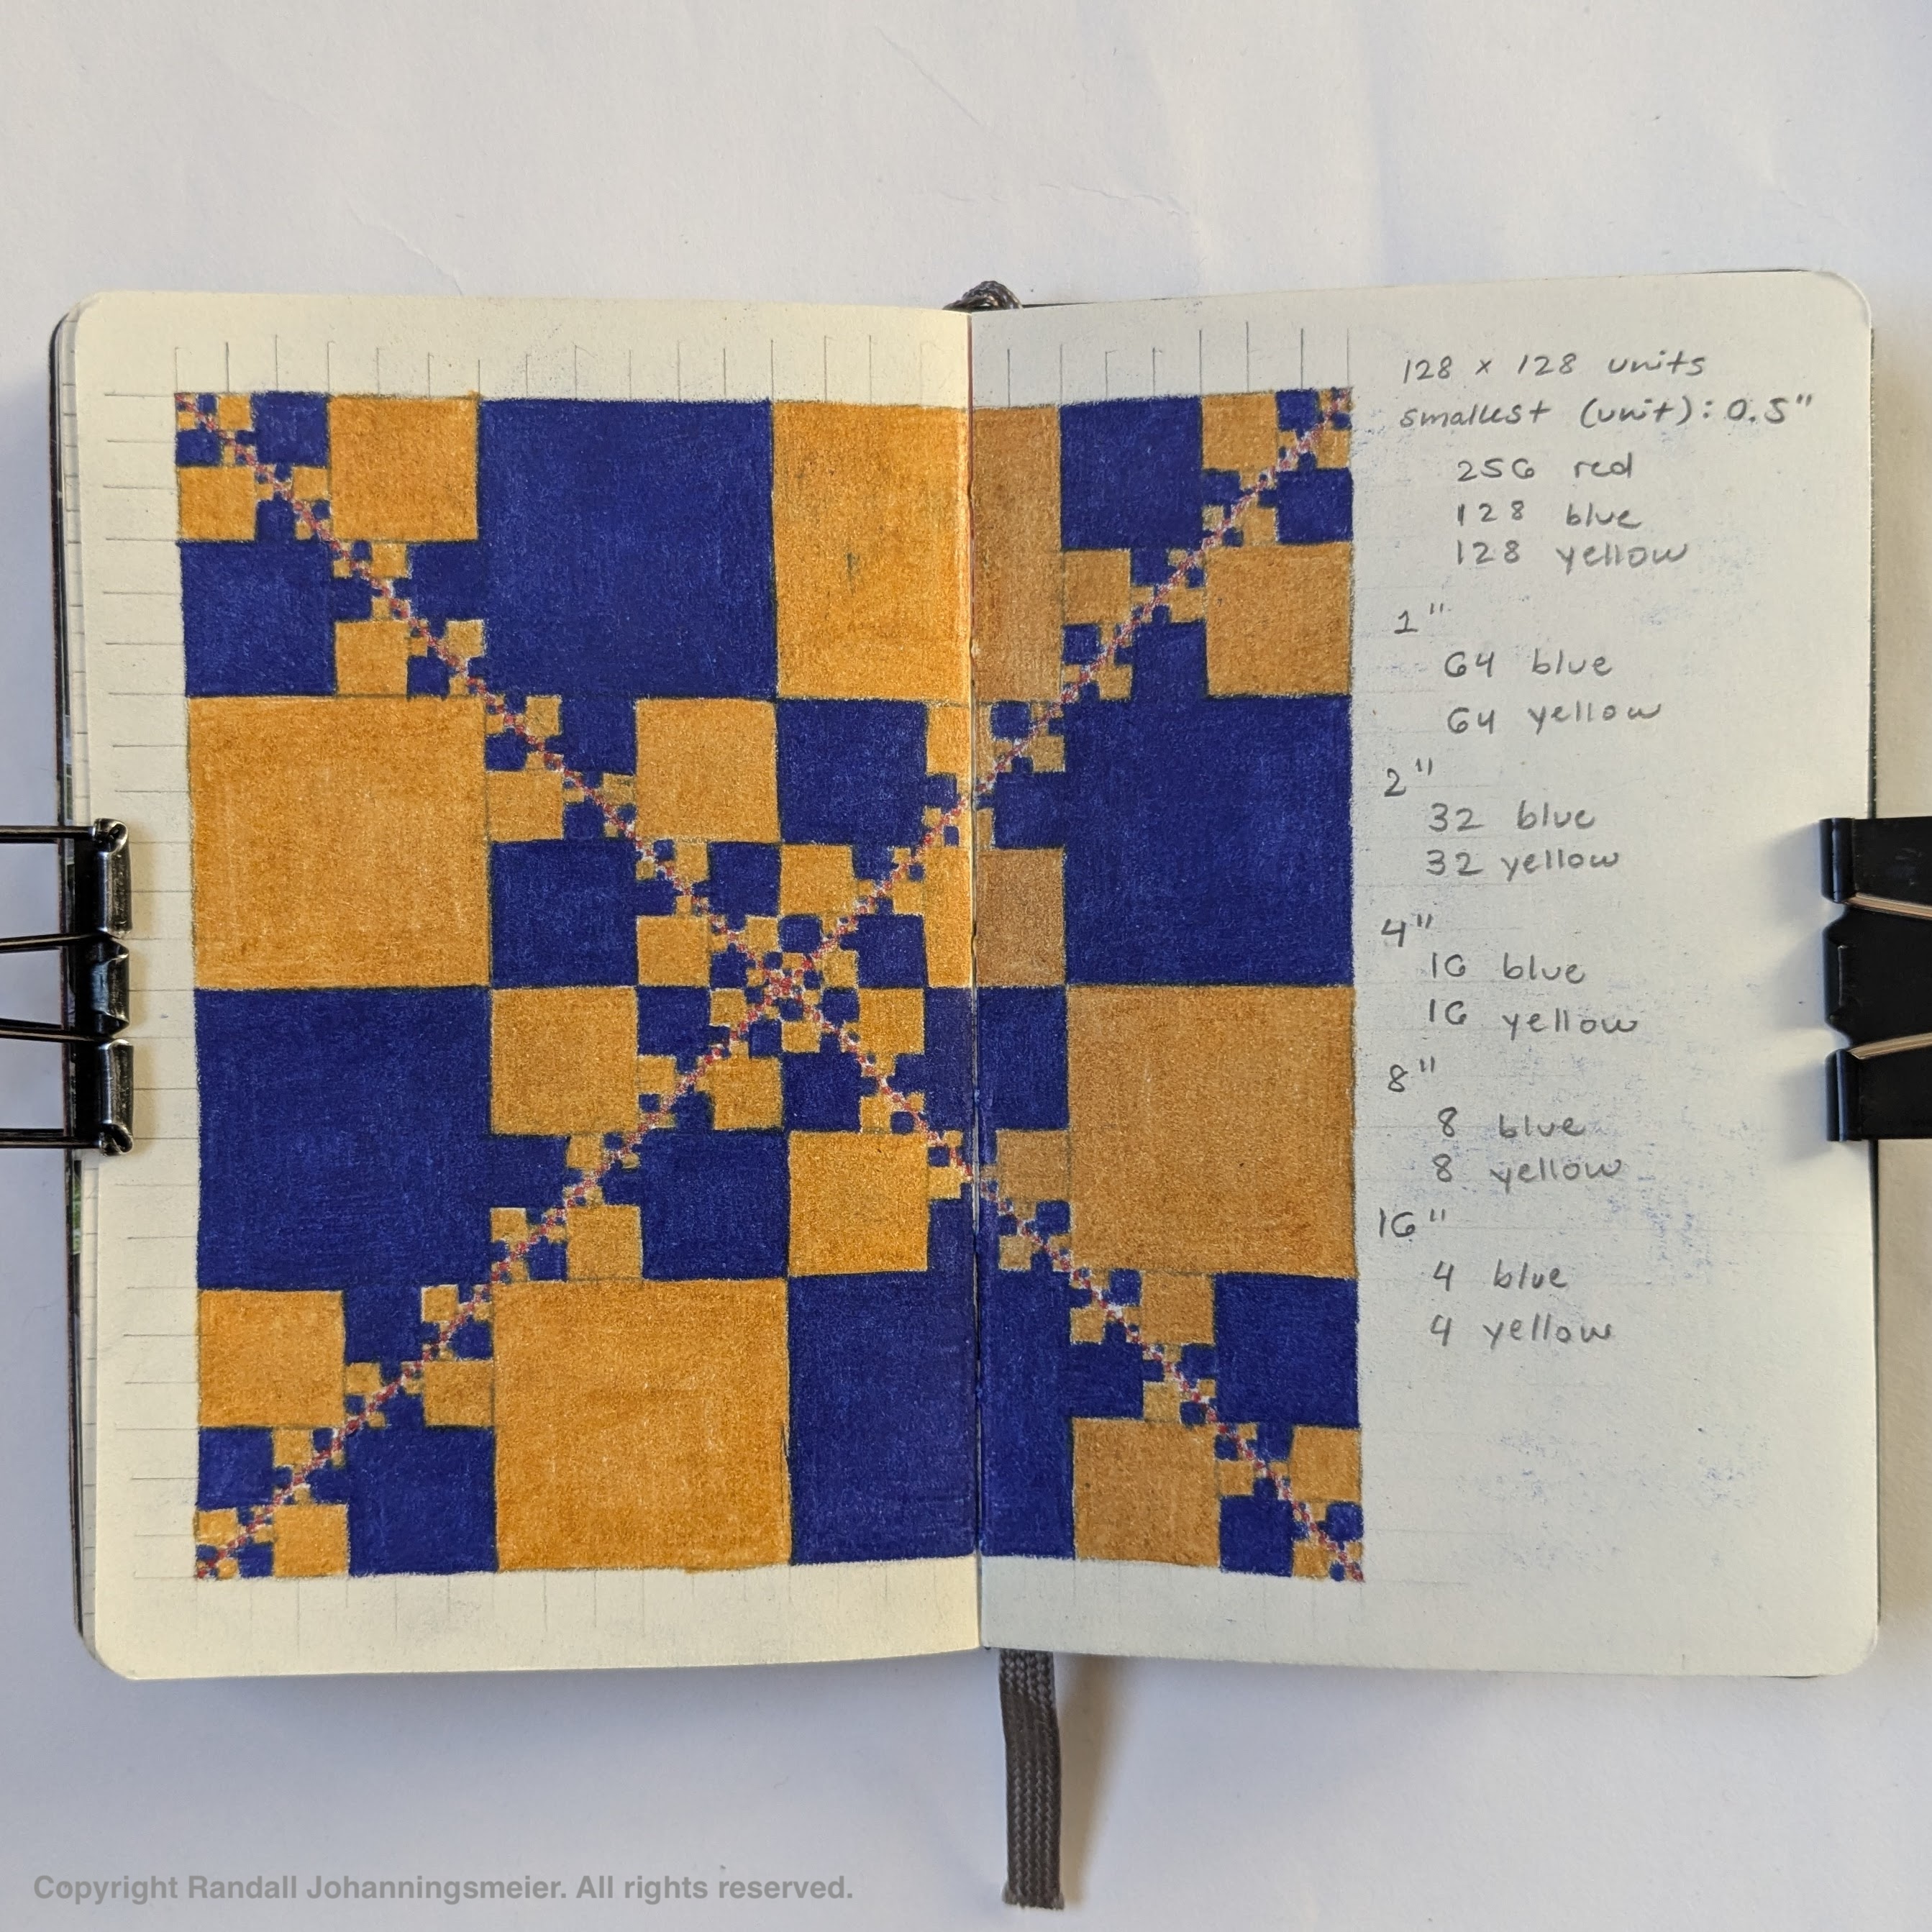 128 x 128 units
smallest (unit): 0.5"
256 red
128 blue
128 yellow
1"
64 blue
64 yellow
2"
32 blue
32 yellow
4"
16 blue
16 yellow
8"
8 blue
8 yellow
16"
4 blue
4 yellow
Copyright Randall Johanningsmeier. All rights reserved.